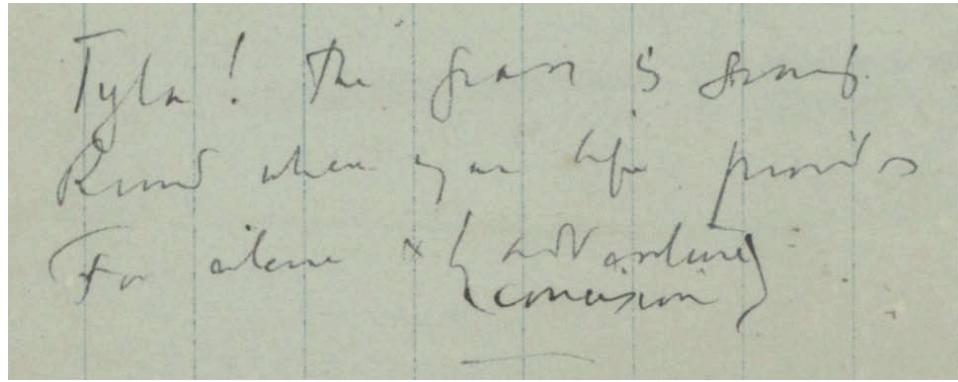 Tyla! The grass is growing
Round where your life provides
For silence & { adventure }
{ concision }